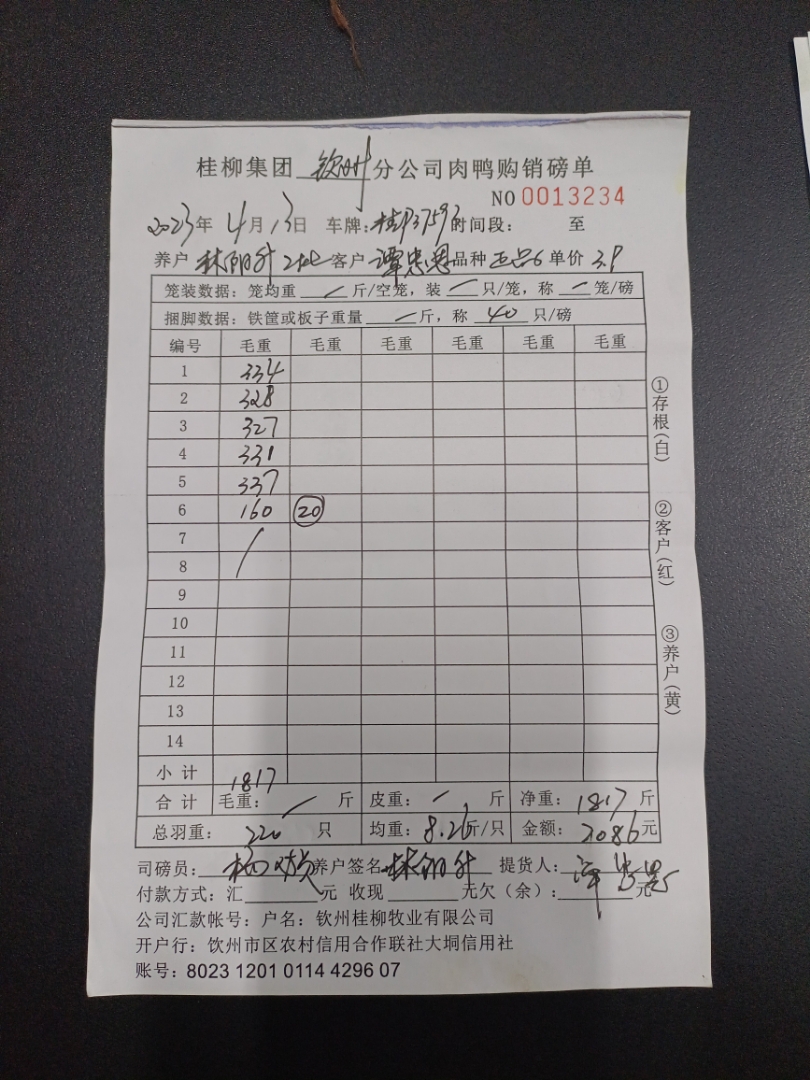 桂柳集团 钦州 分公司肉鸭购销磅单
NO 0013234
2023年 4月13日 车牌:桂P37593 时间段: 至
养户 林阳升 客户 谭忠恩 品种 正品6 单价 3.9
笼装数据:笼均重 / 斤/空笼,装 / 只/笼,称 / 笼/磅
捆脚数据:铁筐或板子重量 / 斤,称 40 只/磅
编号 毛重 毛重 毛重 毛重 毛重 毛重
1 334
2 328
3 327
4 331
5 337
6 160 20
7 /
8
9
10
11
12
13
14
小计 1817
合计 毛重: / 斤 皮重: / 斤 净重: 1817 斤
总羽重: 220 只 均重: 8.26斤/只 金额: 7086元
司磅员: 养户签名 林阳升 提货人: 谭忠恩
付款方式:汇 元 收现 元欠(余): 元
公司汇款帐号:户名:钦州桂柳牧业有限公司
开户行:饮州市区农村信用合作联社大垌信用社
账号:8023 1201 0114 4296 07
①存根(白)
②客户(红)
③养户(黄)